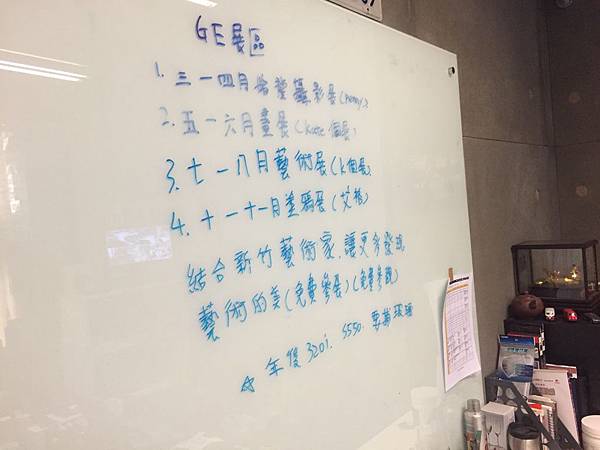 GE展區
1. 三一四月 攝影展(
2. 五一六月畫展(Kate個展)
3. 七一八月藝術展(K個展)
4. 十一十一月塗鴉展(艾
結合新竹藝術家,讓更多發現
藝術的美(免費參展)(免費參觀)
☆ 年後 320